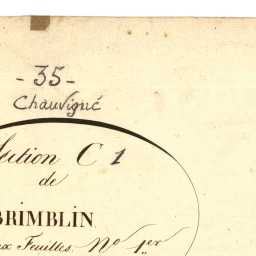 - 35 -
Chauvigné
Section C 1
de
BRIMBLIN
ux Feuilles. Nº 1.er